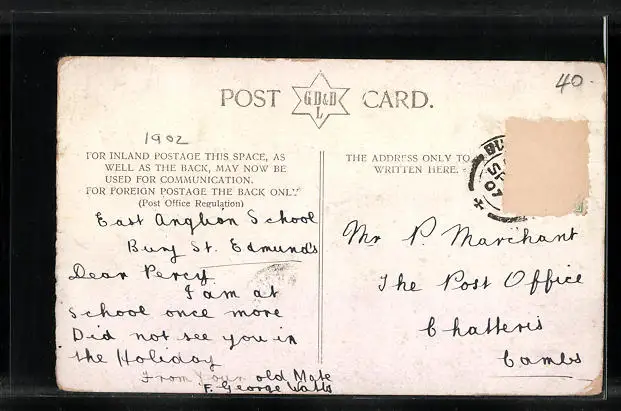 40
POST GD&D L CARD.
1902
FOR INLAND POSTAGE THIS SPACE, AS
WELL AS THE BACK, MAY NOW BE
USED FOR COMMUNICATION.
FOR FOREIGN POSTAGE THE BACK ONLY
(Post Office Regulation)
East Anglian School
Bury St. Edmund's
Dear Percy
I am at
school once more
Did not see you in
the Holiday
From Your old Mate
F. George Watts
THE ADDRESS ONLY TO
WRITTEN HERE.
Mr P. Marchant
The Post Office
Chatteris
Cambs